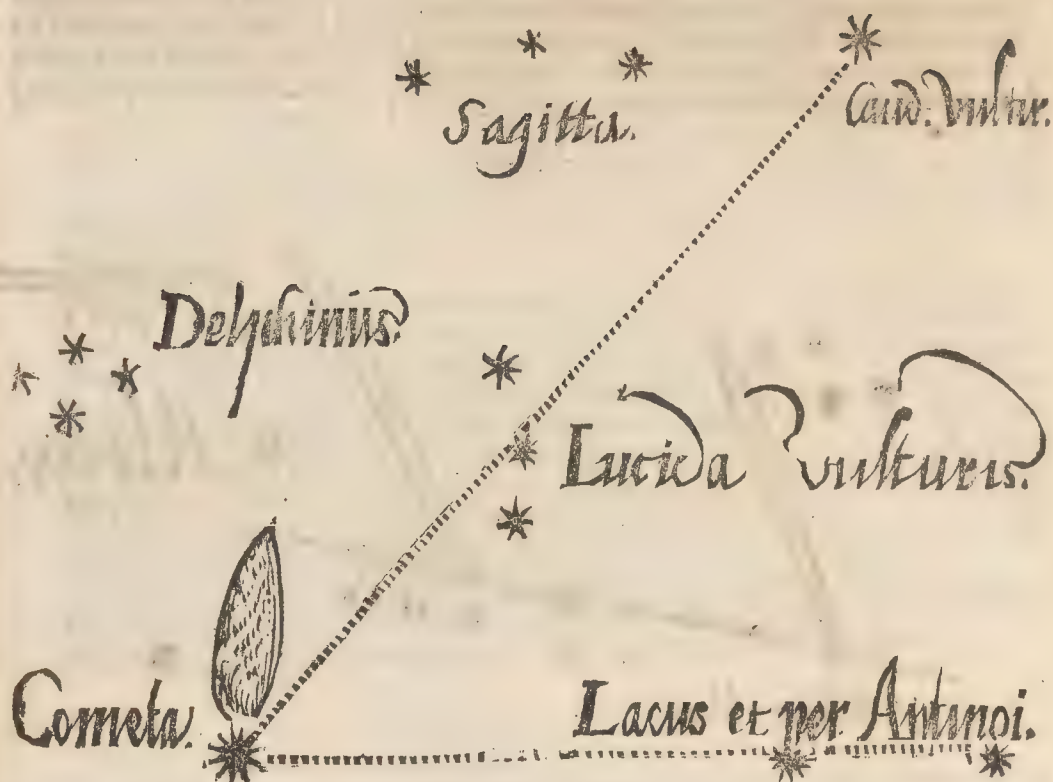 Sagitta.
Caud. Vultur.
Delphinus.
Lucida Vulturis.
Cometa.
Lacus et per Antinoi.